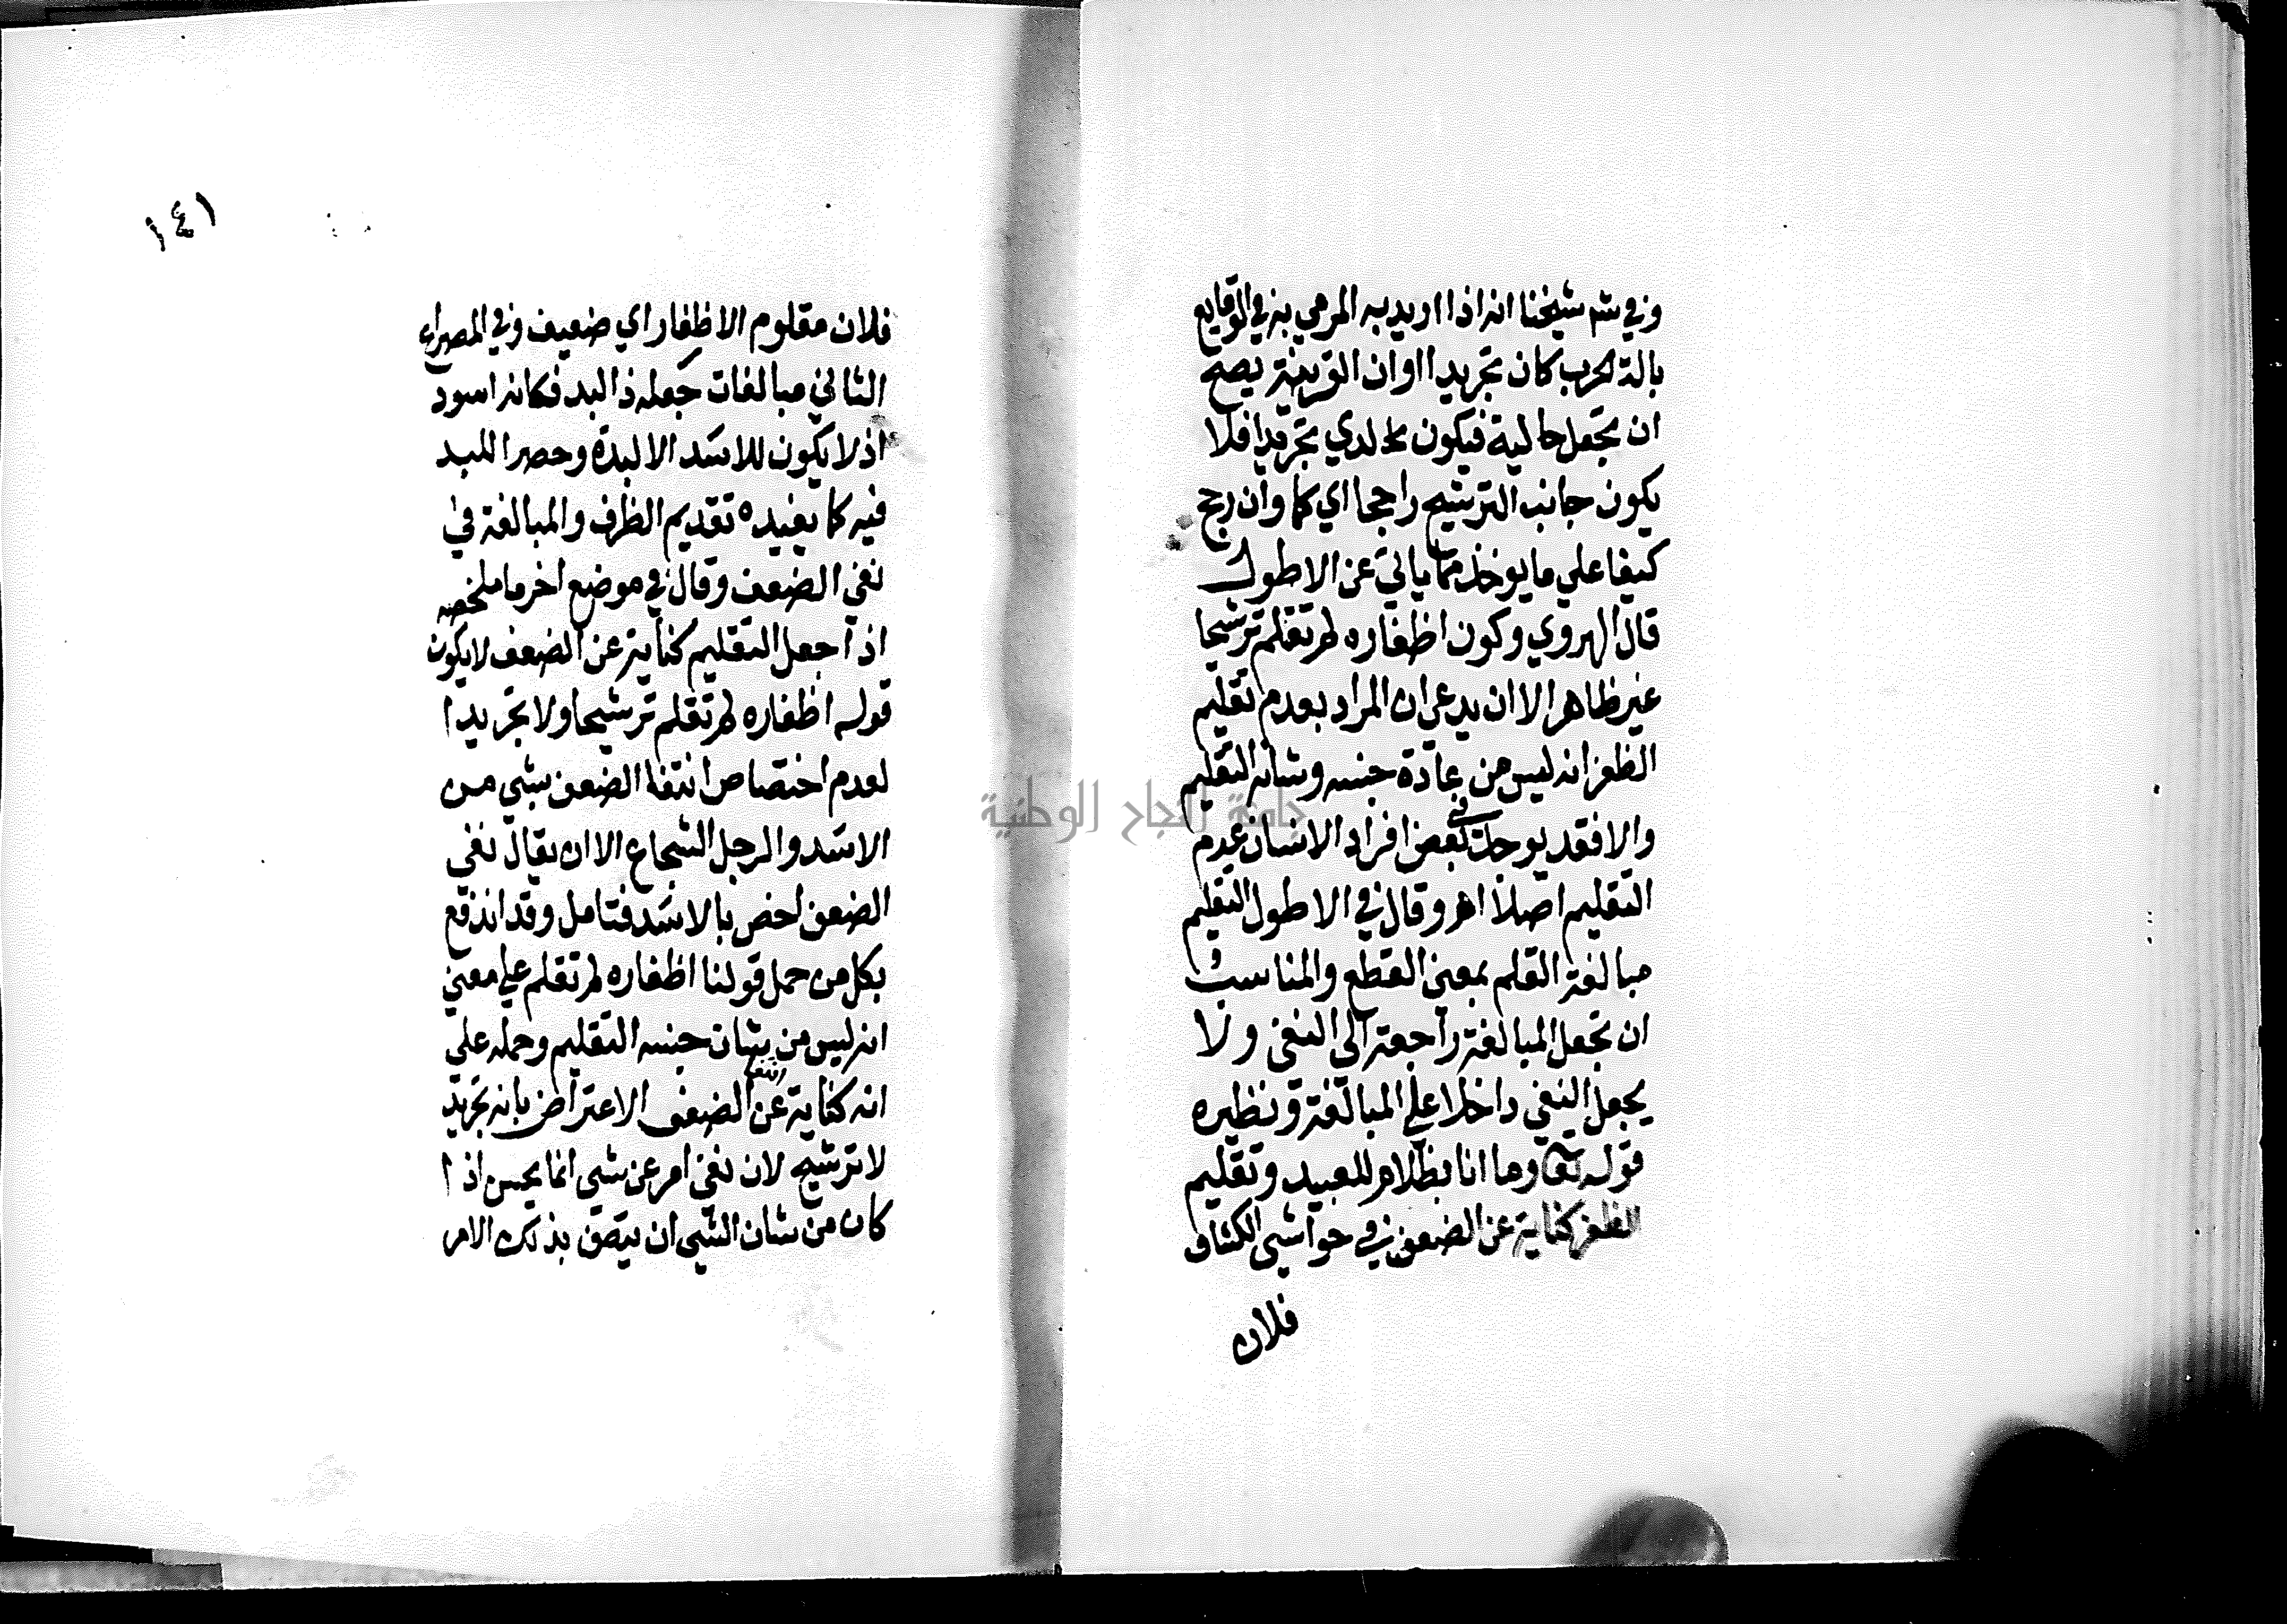 وفي شم شيخنا انه اذا اريد به المرمي به في الوقايع
بالة الحرب كان تجريدا اوان القرينة يصح
ان تجعل حالية فيكون لدي تجريدا فلا
يكون جانب الترشيح راجحا اي كما وان رجح
كيفا علي ما يوخذ مما ياتي عن الاطول
قال الهروي وكون اظفاره لم تقلم ترشيحا
غير ظاهر الا ان يدعى ان المراد بعدم تقليم
الظفر انه ليس من عادة جنسه وشانه التقليم
والا فقد يوجد في بعض افراد الانسان عدم
التقليم اصلا اهر وقال في الاطول التقليم
مبالغة القلم بمعني القطع والمناسب
ان تجعل المبالغة راجعة الى النفي ولا
يجعل النفي داخلا علي المبالغة ونظيره
قوله تعا وما انا بظلام للعبيد وتقليم
الظفر كناية عن الضعف وفي حواشي الكشاف
فلان
١٤١
فلان مقلوم الاظفار اي ضعيف وفي المصراع
الثاني مبالغات جعله ذا لبد فكانه اسود
اذ لا يكون للاسد الا لبدة وحصر اللبد
فيه كما يفيده تقديم الظرف والمبالغة في
نفي الضعف وقال في موضع اخر ما ملخصه
اذا جعل التقليم كناية عن الضعف لا يكون
قوله اظفاره لم تقلم ترشيحا ولا تجريدا
لعدم اختصاص انتفا الضعف بشي من
الاسد والرجل الشجاع الا ان يقال نفي
الضعف اخص بالاسد فتامل وقد اندفع
بكل من حمل قولنا اظفاره لم تقلم علي معني
انه ليس من شان جنسه التقليم وحمله علي
انه كناية عن انتفا الضعف الاعتراض بانه تجريد
لا ترشيح لان نفي امر عن شي انما يحسن اذا
كان من شان الشي ان يتصف بذلك الامر
جامعة النجاح الوطنية